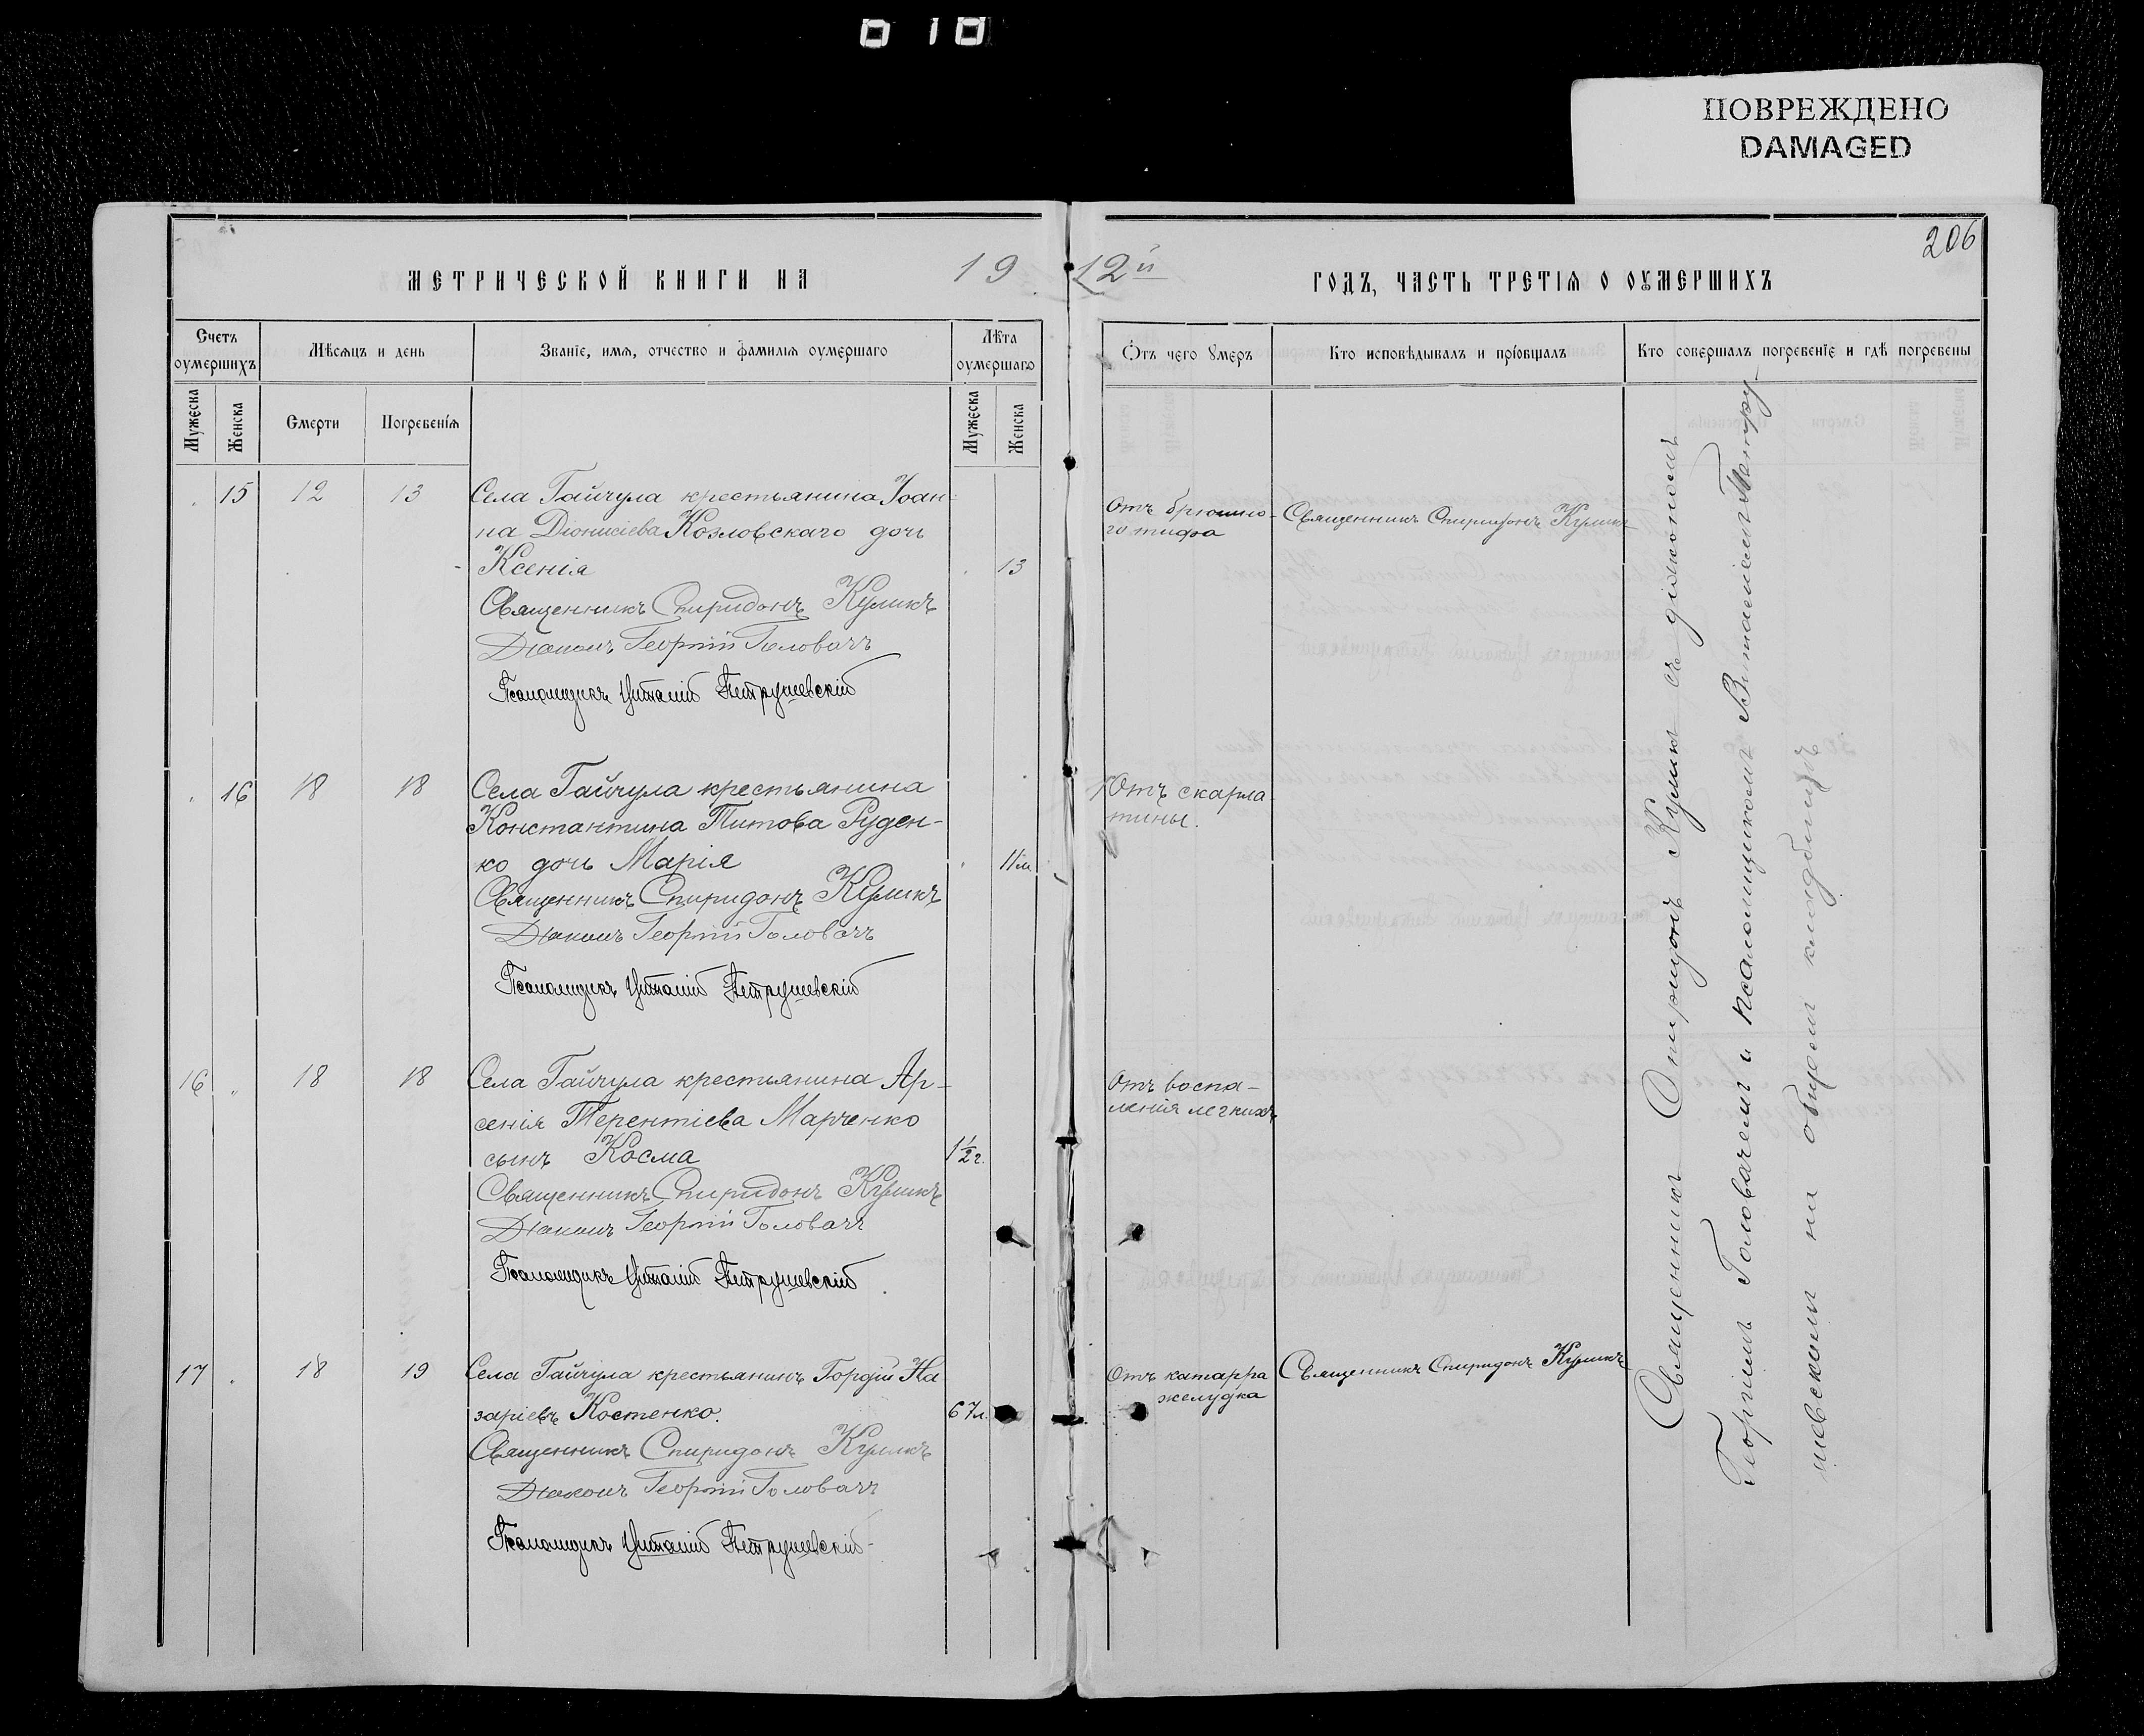 618
ПОВРЕЖДЕНО
DAMAGED
206
МЕТРИЧЕСКОЙ КНИГИ НА 19
12й ГОДЪ, ЧАСТЬ ТРЕТІЯ О ОУМЕРШИХЪ
Счетъ оумершихъ
Мѣсяцъ и день
Званіе, имя, отчество и фамилія оумершаго
Лѣта оумершаго
Отъ чего умеръ
Кто исповѣдывалъ и пріобщалъ
Кто совершалъ погребеніе и гдѣ погребены
Мужеска
Женска
Смерти
Погребенія
Мужеска
Женска
15 12 13 Села Гайчула крестьянина Іоан-
на Діонисіева Козловскаго дочь
Ксенія 13
Священникъ Спиридонъ Куликъ
Діаконъ Георгій Головачъ
Псаломщикъ Виталій Петрушевскій
Отъ брюшно-
го тифа
Священникъ Спиридонъ Куликъ
16 18 18 Села Гайчула крестьянина
Константина Титова Руден-
ко дочь Марія 11 м.
Священникъ Спиридонъ Куликъ
Діаконъ Георгій Головачъ
Псаломщикъ Виталій Петрушевскій
Отъ скарла-
тины.
16 18 18 Села Гайчула крестьянина Ар-
сенія Терентіева Марченко
сынъ Косма 1½ г.
Священникъ Спиридонъ Куликъ
Діаконъ Георгій Головачъ
Псаломщикъ Виталій Петрушевскій
Отъ воспа-
ленія легкихъ
17 18 19 Села Гайчула крестьянинъ Гордій На
заріевъ Костенко. 67 л.
Священникъ Спиридонъ Куликъ
Діаконъ Георгій Головачъ
Псаломщикъ Виталій Петрушевскій
Отъ катарра
желудка
Священникъ Спиридонъ Куликъ
Священникъ Спиридонъ Куликъ съ діакономъ
Георгіемъ Головачемъ и псаломщикомъ Виталіемъ Петру-
шевскимъ на общемъ кладбищѣ